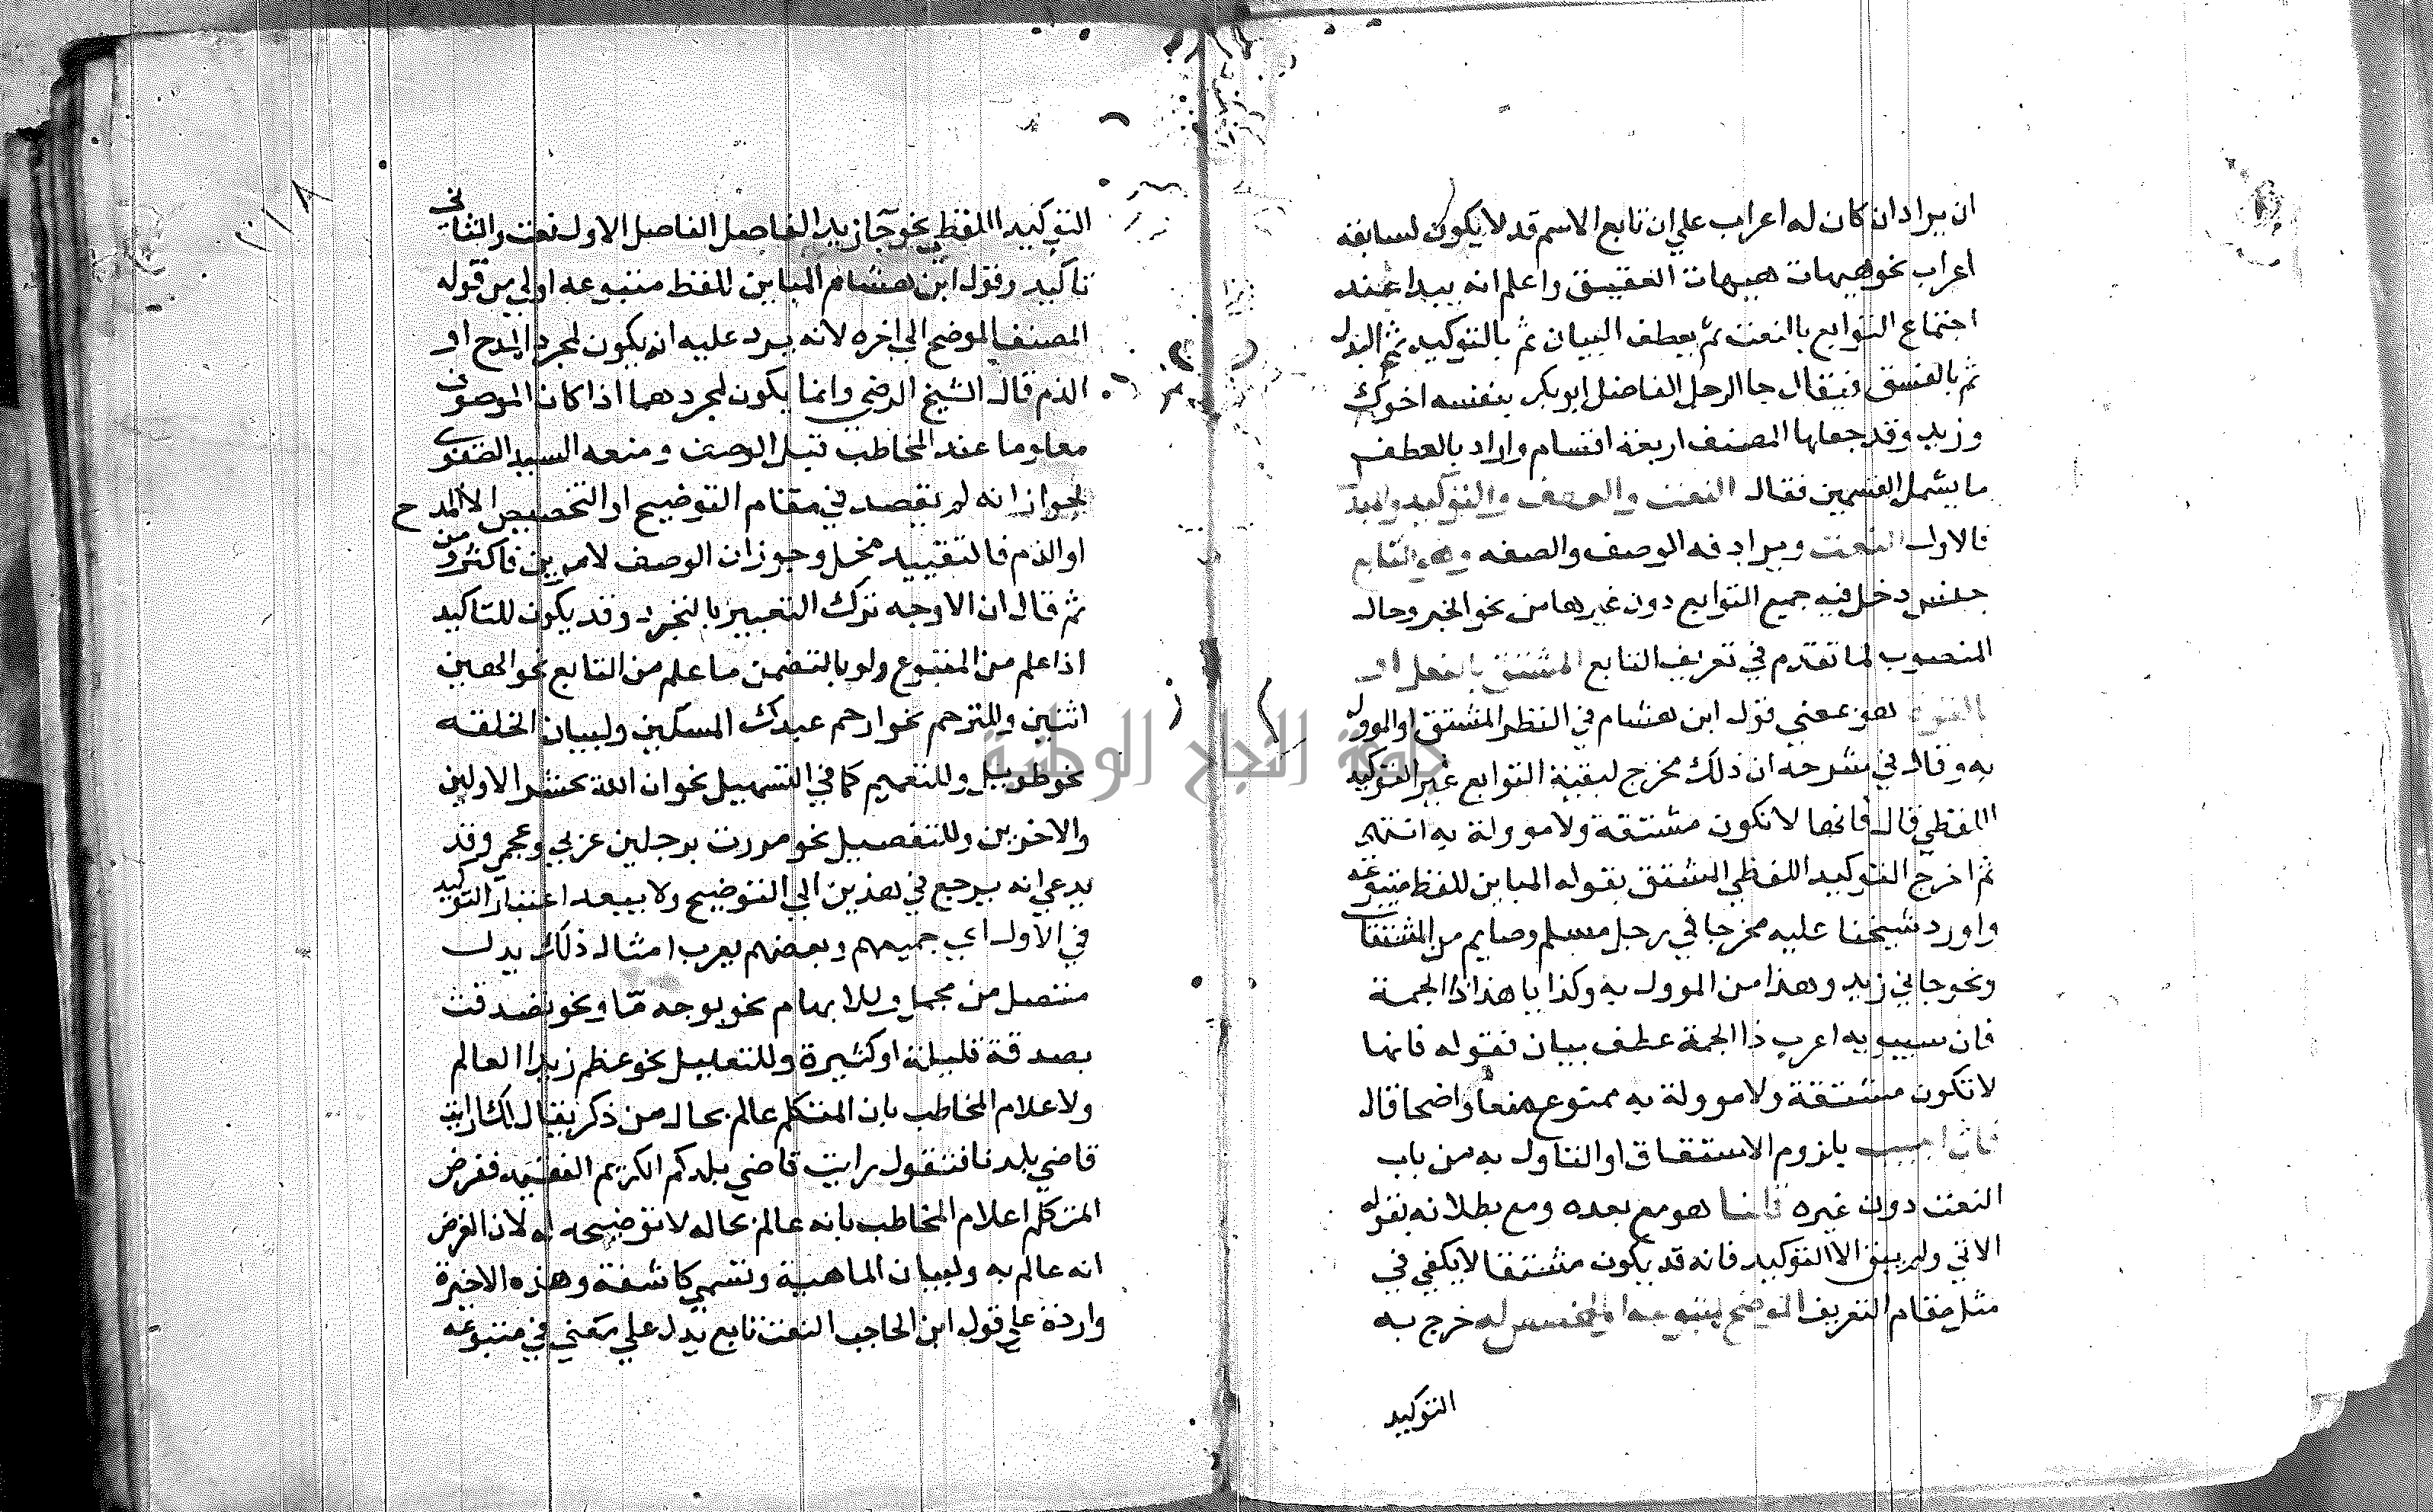 ان يراد ان كان له اعراب علي ان تابع الاسم قد لا يكون لسابقه
اعراب نحو هيهات هيهات العقيق واعلم انه يبدا عند
اجتماع التوابع بالنعت ثم بعطف البيان ثم بالتوكيد ثم البدل
ثم بالنسق فيقال جا الرجل الفاضل ابو بكر نفسه اخوك
وزيد وقد جعلها المصنف اربعة اقسام واراد بالعطف
ما يشمل القسمين فقال النعت والعطف والتوكيد والبدل
فالاول النعت ويرادفه الوصف والصفه وهو التابع
جنس دخل فيه جميع التوابع دون غيرها من نحو الخبر وحال
المنصوب لما تقدم في تعريف التابع المشتق بالفعل او
بالقوة هو بمعني قول ابن هشام في القطر المشتق او الموول
به وقال في شرحه ان ذلك مخرج لبقية التوابع غير التوكيد
اللفظي قال فانها لا تكون مشتقة ولا موولة به انتهي
ثم اخرج التوكيد اللفظي المشتق بقوله المباين للفظ متبوعه
واورد شيخنا عليه مخرجا في رجل مسلم وصايم من المشتقات
ونحو جاني زيد وهذا من الموول به وكذا يا هذا ذا الجمة
فان سيبويه اعرب ذا الجمة عطف بيان فقوله فانها
لا تكون مشتقة ولا موولة به ممنوع منعا واضحا قال
فان اجيب بلزوم الاشتقاق او التاول به من باب
النعت دون غيره قلنا هو مع بعده ومع بطلانه بقوله
الاتي ولم يبق الا التوكيد فانه قد يكون مشتقا لا يكفي في
مثل مقام التعريف الموضح لمتبوعه او المخصص له خرج به
التوكيد
٢١٨
التوكيد اللفظ نحو جا زيد الفاضل الفاضل الاول نعت والثاني
تاكيد وقول ابن هشام المباين للفظ متبوعه اولي من قوله
المصنف الموضح الي اخره لانه يرد عليه انه يكون لمجرد المدح او
الذم قال الشيخ الرضي وانما يكون لمجردهما اذا كان الموصوف
معلوما عند المخاطب قبل الوصف ومنعه السيد الصفوي
لجواز انه لم يقصد في مقام التوضيح او التخصيص الا المدح
او الذم فالتقييد مخل وجوز ان الوصف لامرين فاكثر ومن
ثم قال ان الاوجه ترك التعبير بالتجرد وقد يكون للتاكيد
اذا علم من المتبوع ولو بالتضمن ما علم من التابع نحو الهين
اثنين وللترحم نحو ارحم عبدك المسكين ولبيان الخلقه
نحو طويل وللتعميم كما في التسهيل نحو ان الله يحشر الاولين
والاخرين وللتفصيل نحو مررت برجلين عربي وعجمي وقد
يدعي انه يرجع في هذين الي التوضيح ولا يبعد اعتبار التوكيد
في الاول اي جميعهم وبعضهم يعرب امثال ذلك بدل
منتصل من مجمل وللابهام نحو بوجه مّا ونحو تصدقت
بصدقة قليلة او كثيرة وللتعليل نحو عظم زيدا العالم
ولاعلام المخاطب بان المتكلم عالم بحال من ذكر يقال لك ارايت
قاضي بلدنا فتقول رايت قاضي بلدكم الكريم الفقيه فغرض
المتكلم اعلام المخاطب بانه عالم بحاله لا توضيحه له لان الغرض
انه عالم به ولبيان الماهية وتسمي كاشفة وهذه الاخيرة
واردة علي قول ابن الحاجب النعت تابع يدل علي معني في متبوعه
جامعة النجاح الوطنية